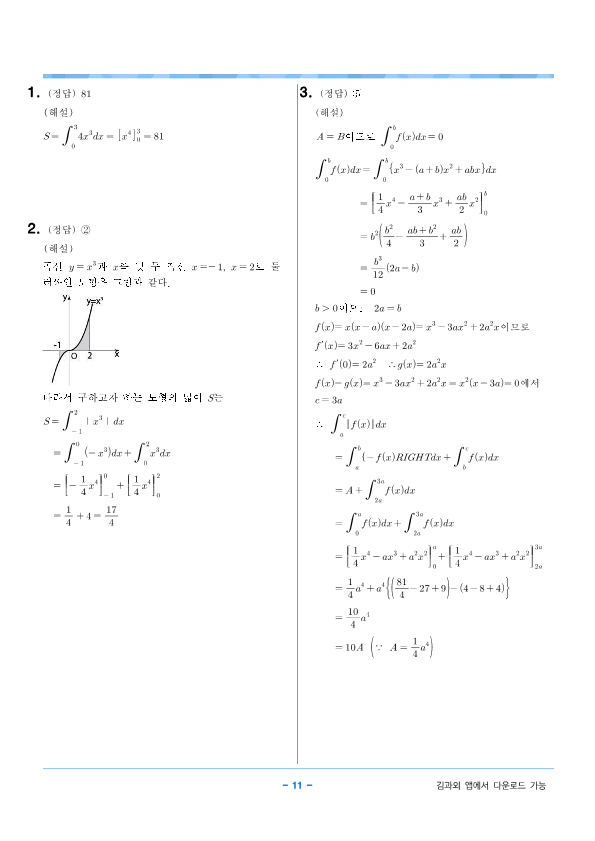 1. (정답) 81
(해설)
S=∫₀³ 4x³dx = [x⁴]₀³ = 81
2. (정답) ②
(해설)
y=x³과 x 두 직선 x=-1, x=2로 둘
같다.
y
y=x³
-1
O 2 x
구하고자 하는 도형의 넓이 S는
S=∫₋₁² | x³ | dx
=∫₋₁⁰ (-x³)dx+∫₀² x³dx
=[-1/4 x⁴]₋₁⁰ + [1/4 x⁴]₀²
=1/4 +4=17/4
3. (정답)
(해설)
A=B이므로 ∫₀ᵇ f(x)dx=0
∫₀ᵇ f(x)dx=∫₀ᵇ {x³-(a+b)x²+abx}dx
=[1/4 x⁴-(a+b)/3 x³+ab/2 x²]₀ᵇ
=b²(b²/4-(ab+b²)/3+ab/2)
=b³/12 (2a-b)
=0
b>0이므로 2a=b
f(x)=x(x-a)(x-2a)=x³-3ax²+2a²x이므로
f′(x)=3x²-6ax+2a²
∴ f′(0)=2a² ∴g(x)=2a²x
f(x)-g(x)=x³-3ax²+2a²x=x²(x-3a)=0에서
c=3a
∴ ∫ₐᶜ |f(x)|dx
=∫ₐᵇ {-f(x)RIGHTdx+∫ᵇᶜ f(x)dx
=A+∫₂ₐ³ᵃ f(x)dx
=∫₀ᵃ f(x)dx+∫₂ₐ³ᵃ f(x)dx
=[1/4 x⁴-ax³+a²x²]₀ᵃ+[1/4 x⁴-ax³+a²x²]₂ₐ³ᵃ
=1/4 a⁴+a⁴{(81/4-27+9)-(4-8+4)}
=10/4 a⁴
=10A (∵ A=1/4 a⁴)
- 11 -
김과외 앱에서 다운로드 가능